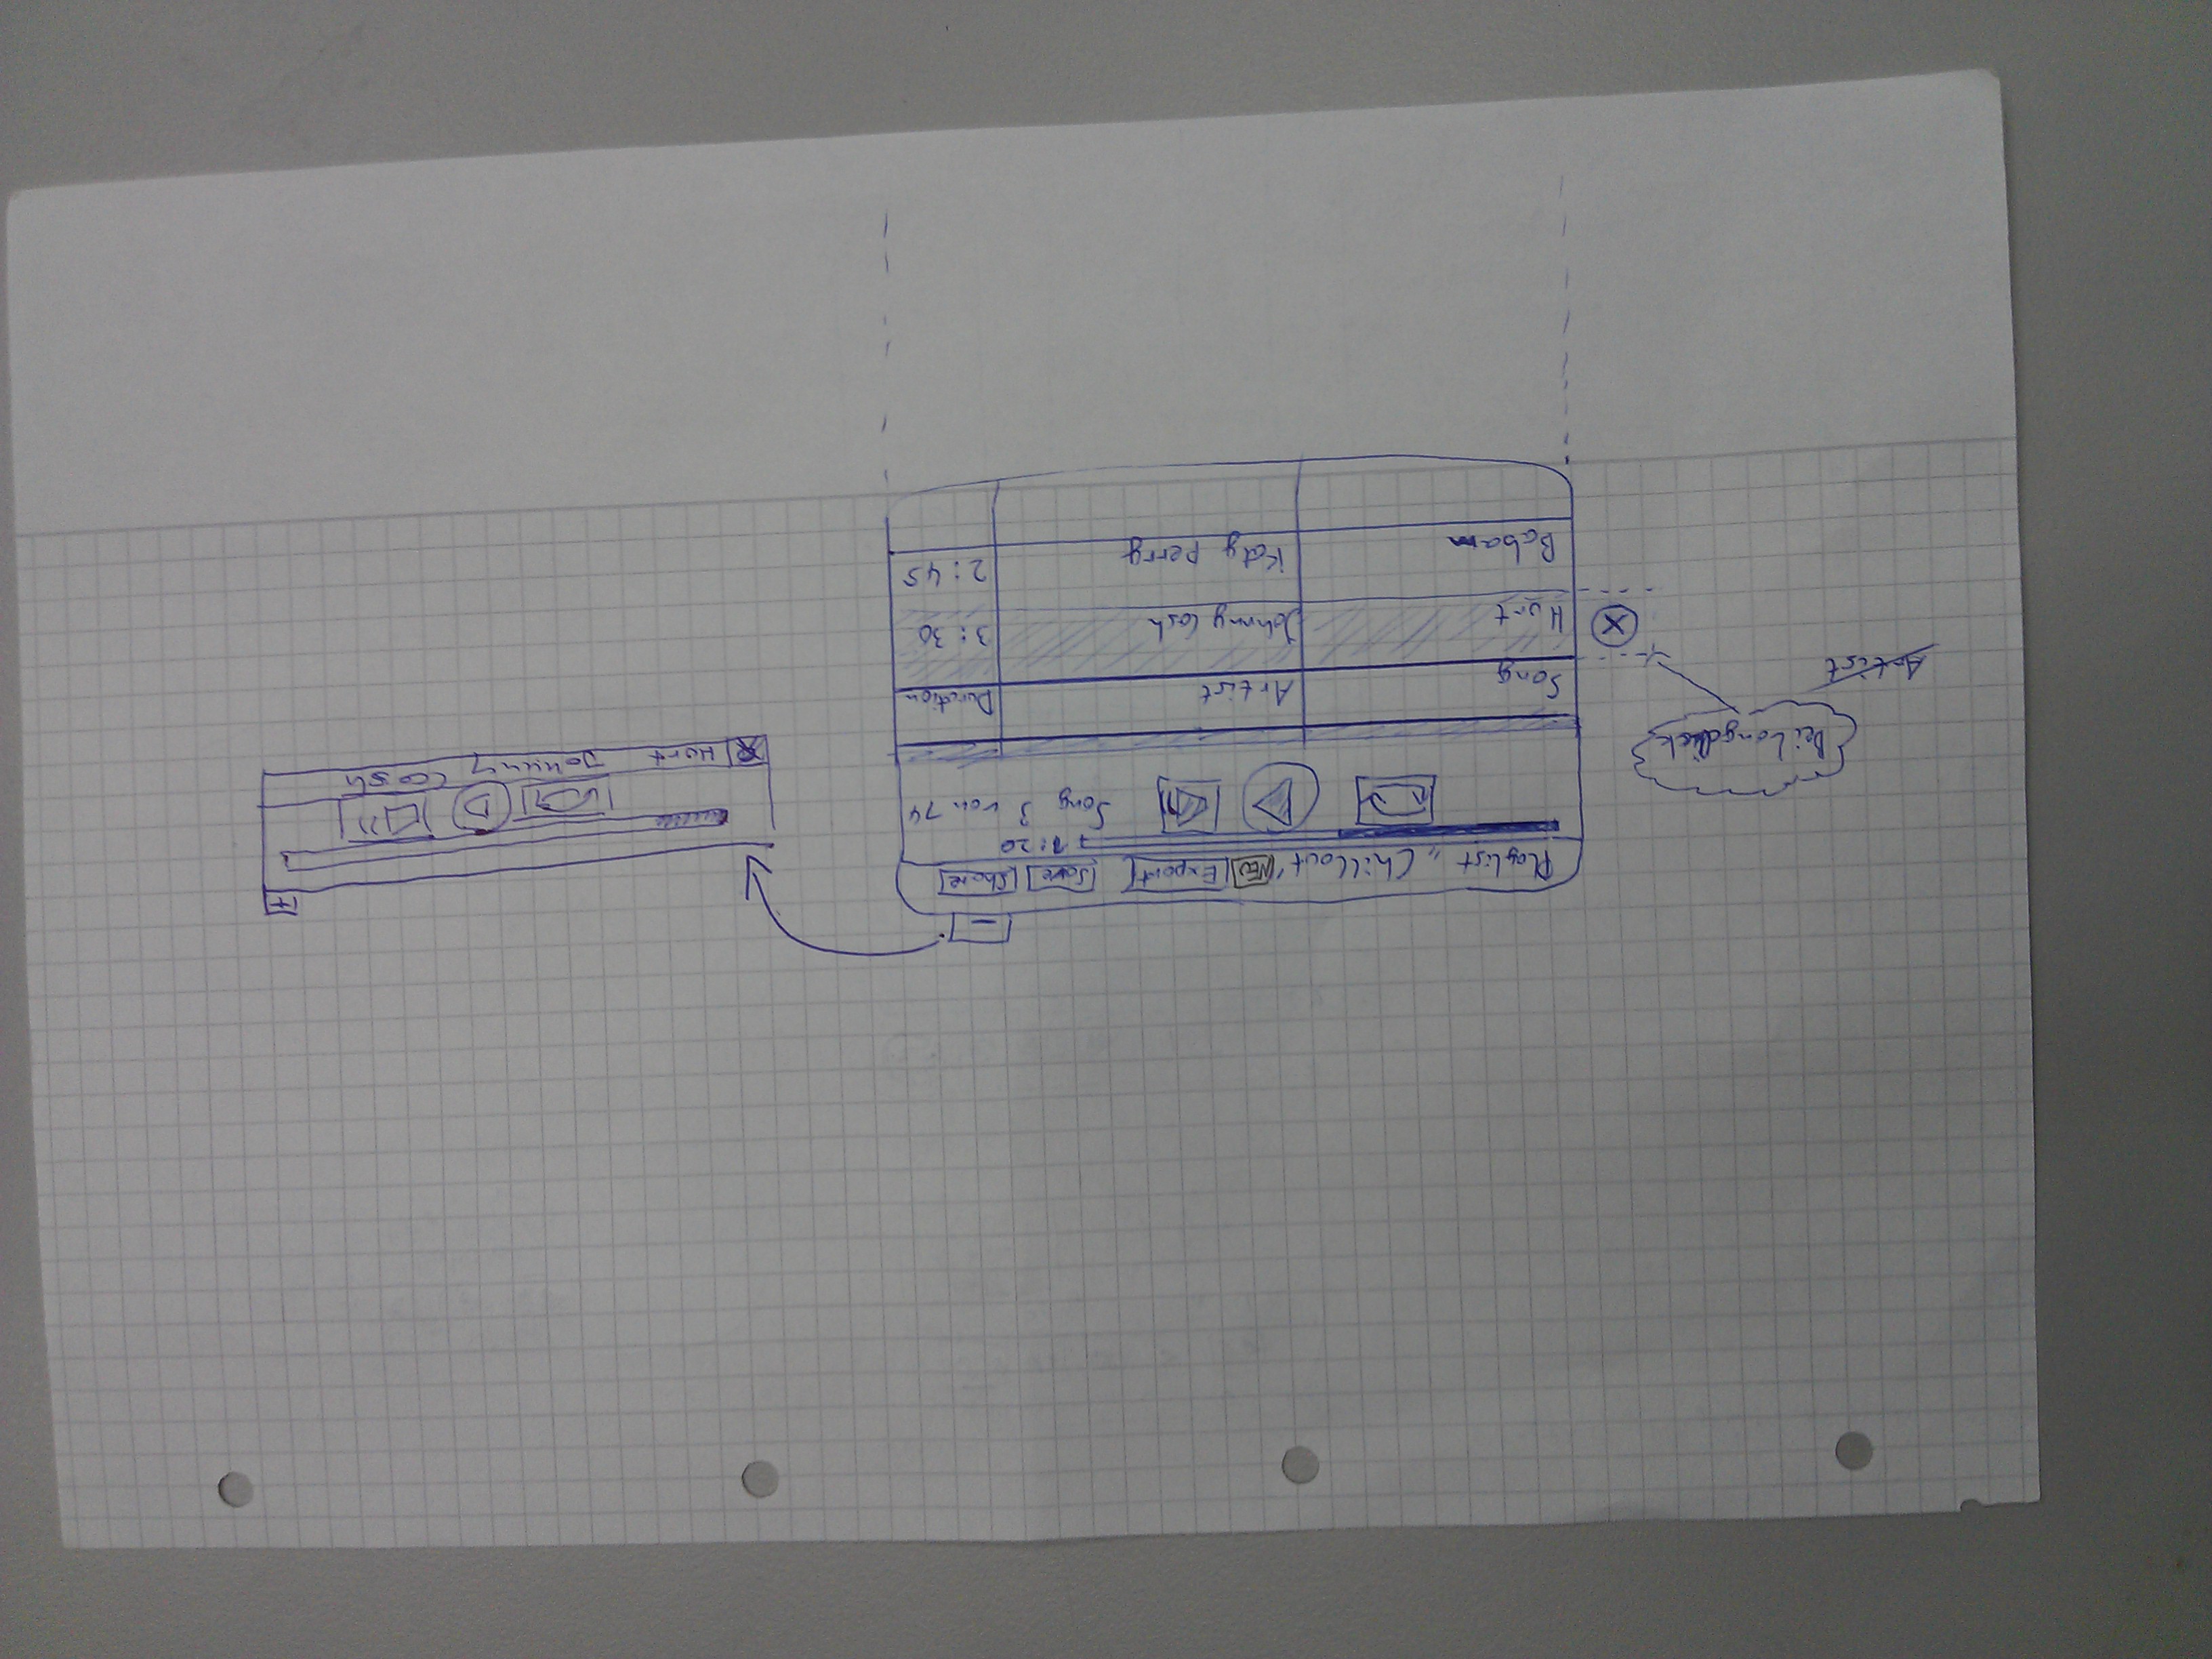 Playlist „Chillout" NEW Export Save Share
1:20
Song 3 von 74
Song Artist Duration
Hurt Johnny Cash 3:30
Babam Katy Perry 2:45
X
Bei Longclick
Artist
X Hurt Johnny Cash